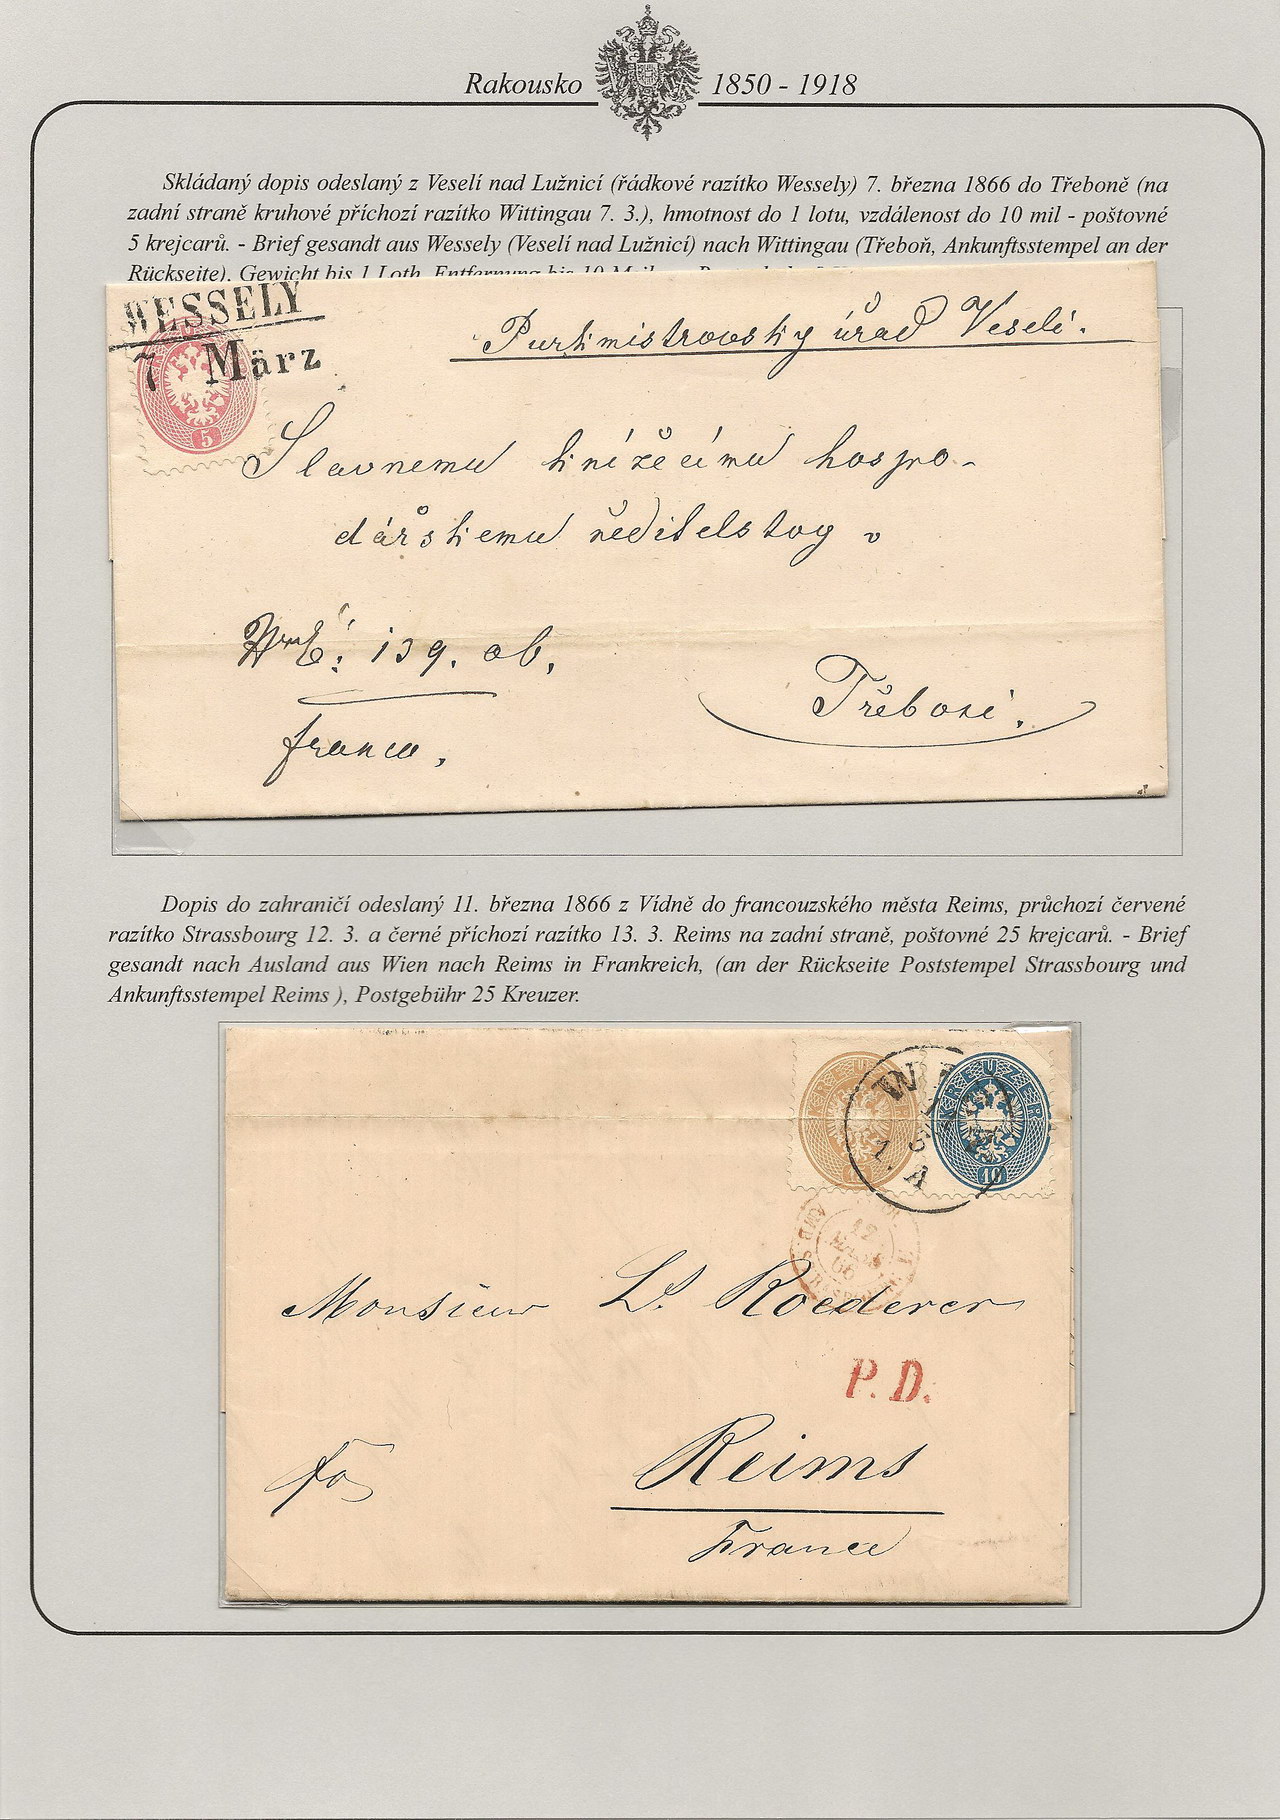 Rakousko 1850 - 1918
Skládaný dopis odeslaný z Veselí nad Lužnicí (řádkové razítko Wessely) 7. března 1866 do Třeboně (na
zadní straně kruhové příchozí razítko Wittingau 7. 3.), hmotnost do 1 lotu, vzdálenost do 10 mil - poštovné
5 krejcarů. - Brief gesandt aus Wessely (Veselí nad Lužnicí) nach Wittingau (Třeboň, Ankunftsstempel an der
Rückseite). Gewicht bis 1 Loth, Entfernung bis 10
WESSELY
7 März
5
Purkmistrovsky úřad Veselí.
Slavnemu knížecímu hospo-
dářskemu ředitelstvy v
139. ob.
Třeboni.
franco.
Dopis do zahraničí odeslaný 11. března 1866 z Vídně do francouzského města Reims, průchozí červené
razítko Strassbourg 12. 3. a černé příchozí razítko 13. 3. Reims na zadní straně, poštovné 25 krejcarů. - Brief
gesandt nach Ausland aus Wien nach Reims in Frankreich, (an der Rückseite Poststempel Strassbourg und
Ankunftsstempel Reims ), Postgebühr 25 Kreuzer.
KREUZER
10
12
MARS
66
Monsieur Ls. Roederer
P.D.
Reims
fo
France